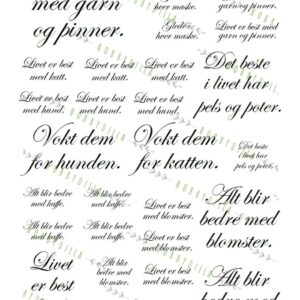 med garn
og pinner.
Glede i
hver maske.
hver maske.
garn og pinner.
Livet er best med
garn og pinner.
Livet er best
med katt.
Livet er best
med katt.
Livet er best
med katt.
Det beste
i livet har
pels og poter.
Livet er best
med hund.
Livet er best
med hund.
Livet er best
med hund.
Vokt dem
for hunden.
Vokt dem
for katten.
Det beste
i livet har
pels og poter.
Alt blir bedre
med kaffe.
Alt blir bedre
med kaffe.
Livet er best
med blomster.
Alt blir
bedre med
blomster.
Alt blir bedre
med kaffe.
Alt blir bedre
med kaffe.
Livet er best
med blomster.
Livet
er best
Alt blir
bedre med
blomster.
Livet er best
med blomster.
Alt blir